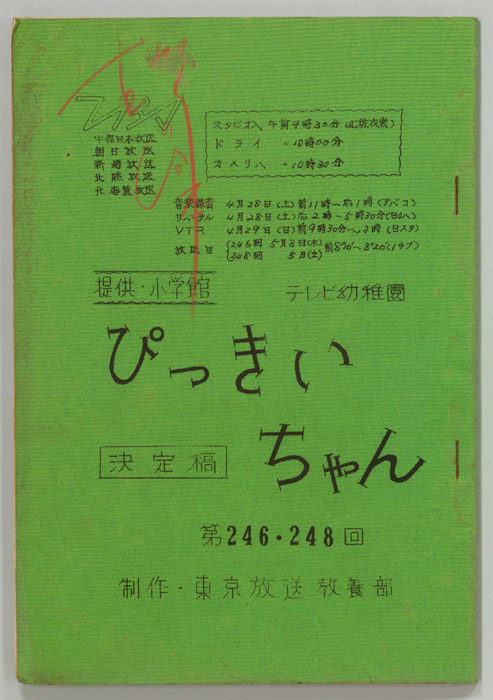 中部日本放送
朝日放送
新潟放送
北陸放送
北海道放送
スタジオ入 午前9時30分(化粧衣裳)
ドライ 〃10時00分
カメリハ 〃10時30分
音楽録音 4月28日(土)前11時〜后1時(アバコ)
リハーサル 4月28日(土)后2時〜5時30分
VTR 4月29日(日)前9時30分〜3時(Bスタ)
放送日 {246回 5月3日(木) 前8°⁰〜8²⁰
248回 5日(土)
提供・小学館
テレビ幼稚園
ぴっきい
ちゃん
決定稿
第246・248回
制作・東京放送教養部